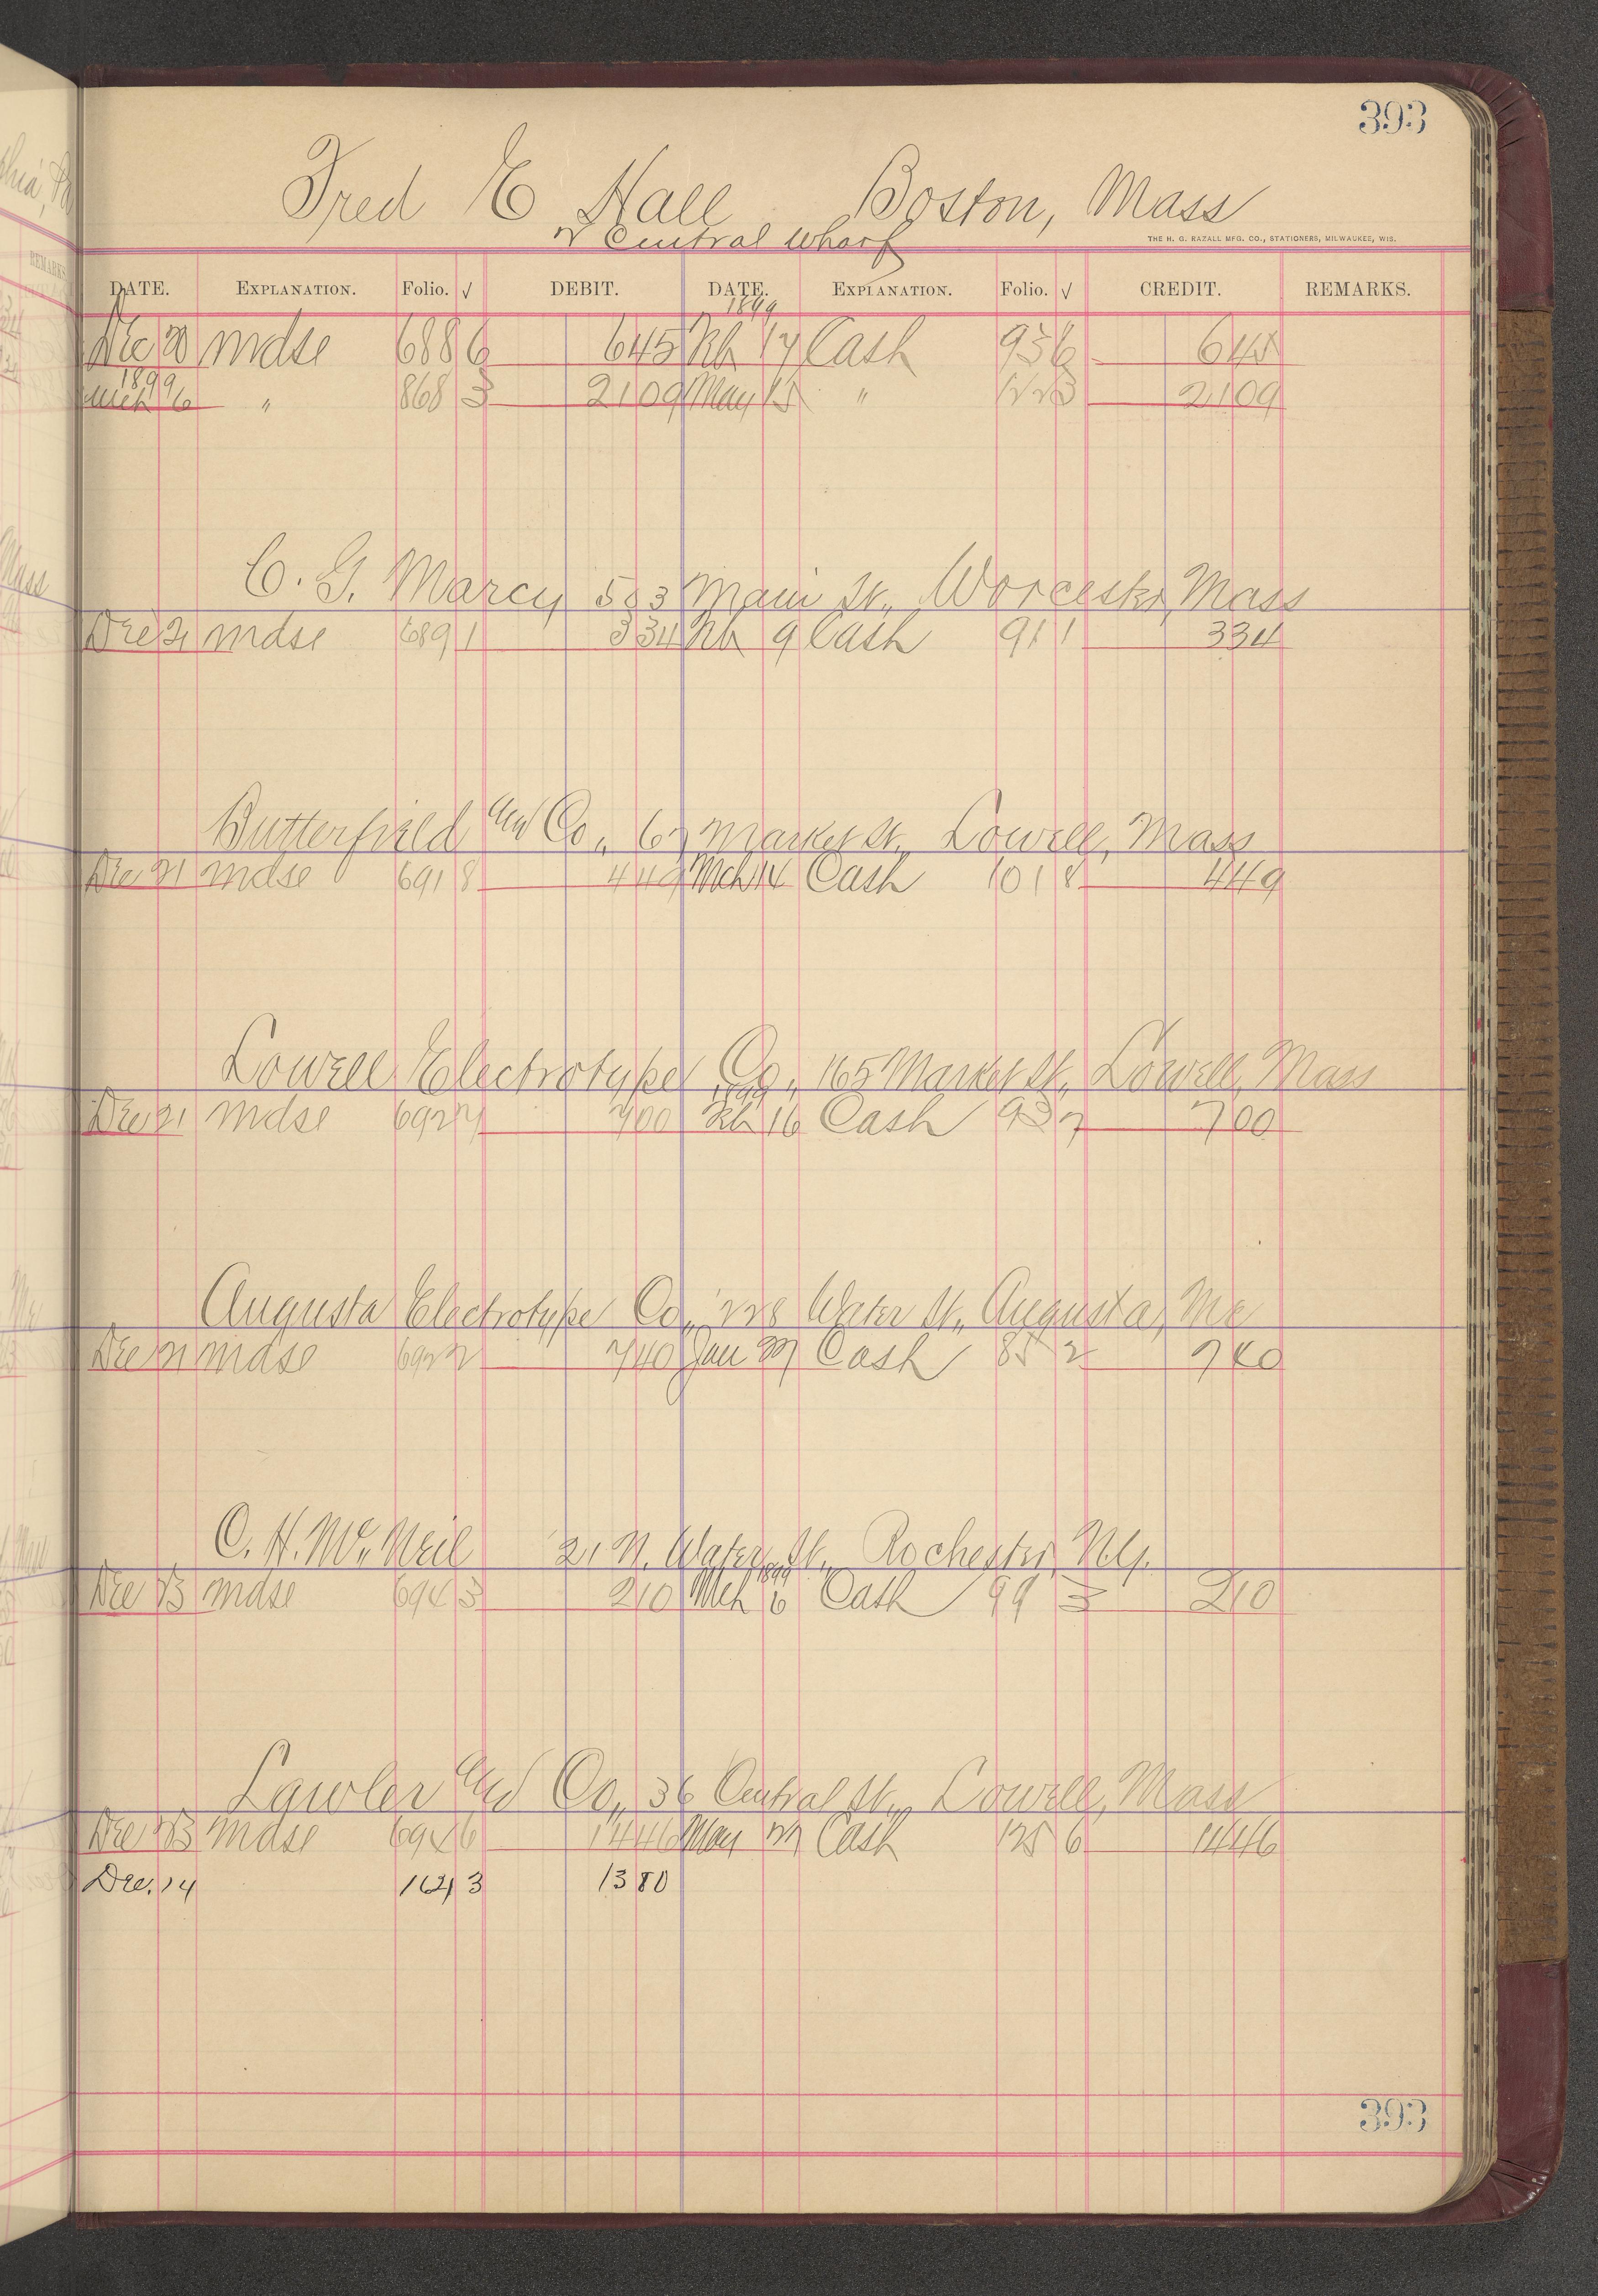 393
Fred E Hall Boston, Mass
Central Wharf
THE H. G. RAZALL MFG. CO., STATIONERS, MILWAUKEE, WIS.
DATE. EXPLANATION. Folio. √ DEBIT. DATE. EXPLANATION. Folio. √ CREDIT. REMARKS.
1899
Dec 20 mdse 688 6 645 Feb 17 Cash 93 6 645
1899
Mch 6 " 868 3 2109 May 15 " 3 2109
C. G. Marcy 503 Main St., Worcester, Mass
Dec 21 mdse 689 1 334 Feb 9 Cash 91 1 334
Butterfield and Co., Market St., Lowell, Mass
Dec 21 mdse 691 8 449 Mch 14 Cash 101 8 449
Lowell Electrotype Co., 165 Market St., Lowell, Mass
1899
Dec 21 mdse 692 7 700 Feb 16 Cash 93 7 700
Augusta Electrotype Co., 228 Water St., Augusta, Me
Dec 21 mdse 692 2 740 Jan Cash 85 2 740
C. H. McNeil 21 N. Water St., Rochester, N.Y.
1899
Dec 23 mdse 694 3 210 Mch 6 Cash 99 3 210
Lawler and Co., 36 Central St., Lowell, Mass
Dec 23 mdse 694 6 1446 May Cash 125 6 1446
Dec. 14 162 3 1380
393